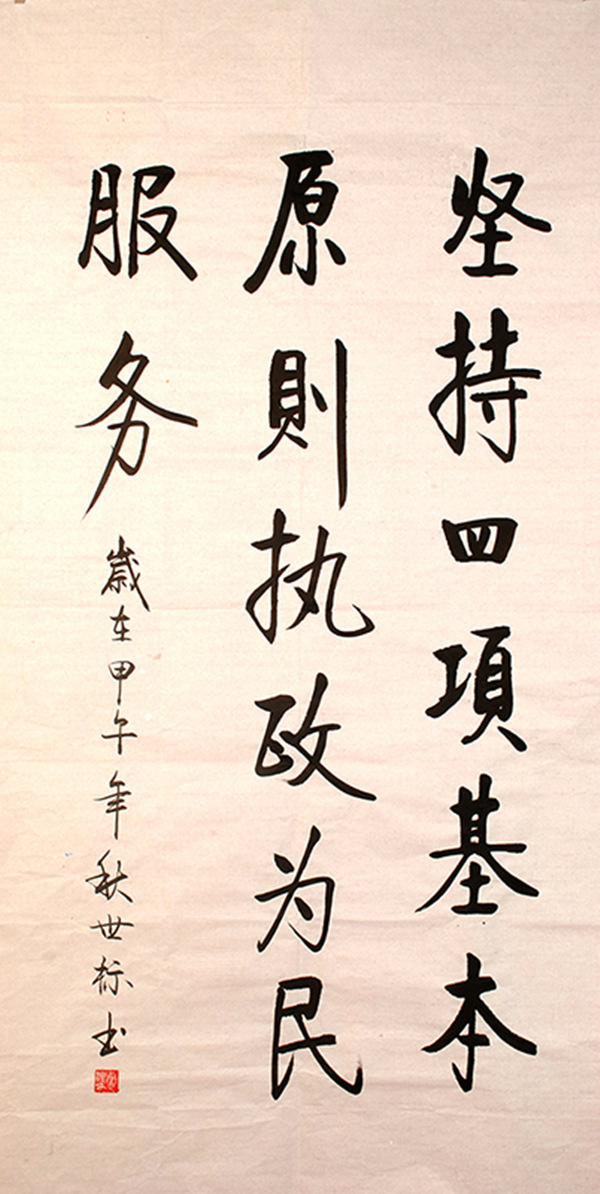 坚持四項基本
原則执政为民
服务
歲在甲午年秋世标书